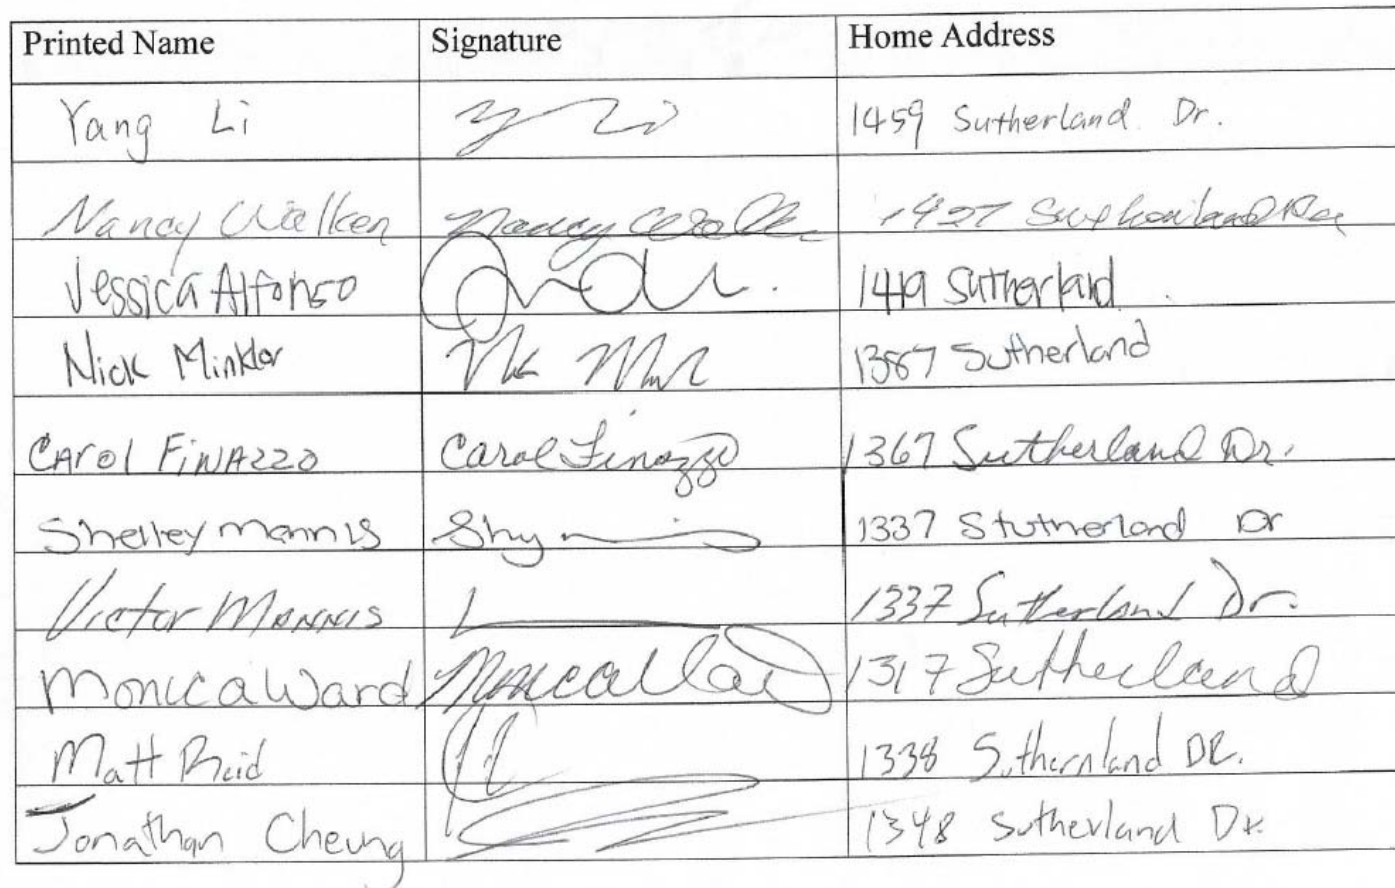 Printed Name Signature Home Address
Yang Li 1459 Sutherland Dr.
Nancy Walker Nancy 1427
Jessica Alfonso 1419 Sutherland
Nick Minkler 1387 Sutherland
Carol Finazzo Carol Finazzo 1367 Sutherland Dr.
Shelley Mannis 1337 Stutherland Dr
Victor Mannis 1337 Sutherland Dr.
Monica Ward Monica 1317 Sutherland
Matt Reid 1338 Suthernland DR.
Jonathan Cheung 1348 Sutherland Dr.